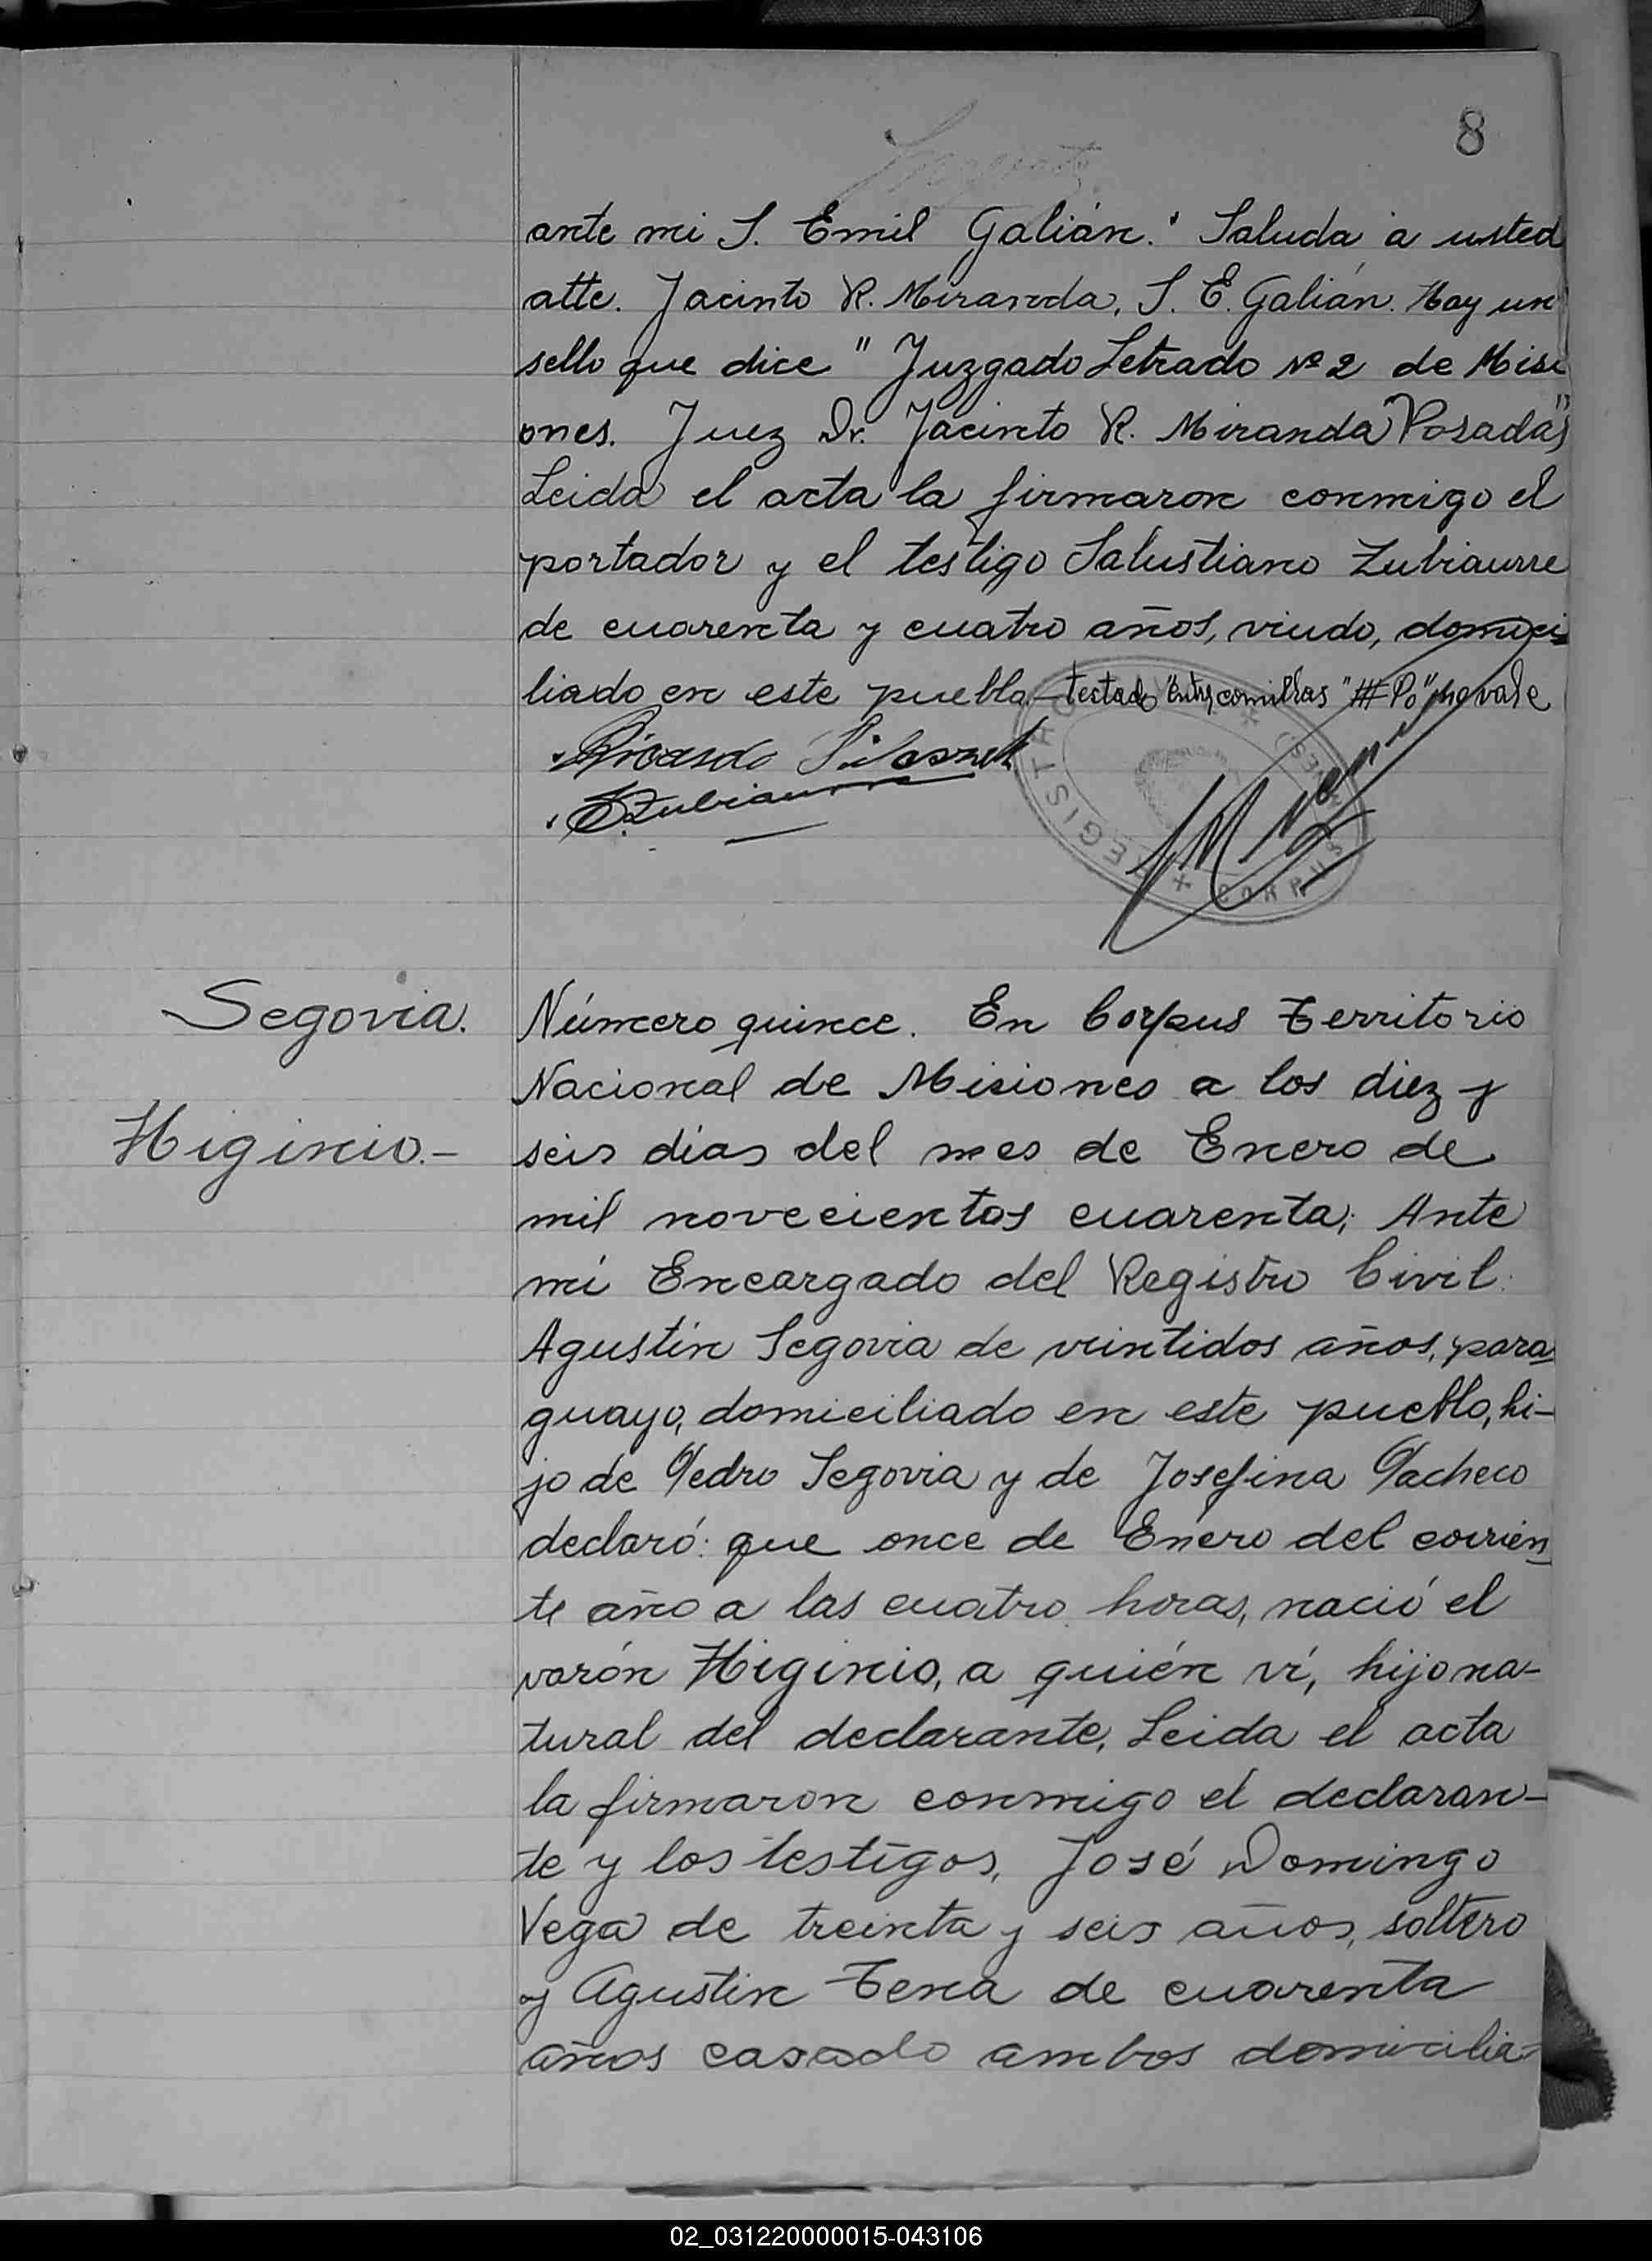 8
ante mi S. Emil Galián." Saluda a usted
atte. Jacinto R. Miranda, S. E. Galián. Hay un
sello que dice "Juzgado Letrado Nº 2 de Misi
ones. Juez Dr. Jacinto R. Miranda "Posadas"
Leida el acta la firmaron conmigo el
portador y el testigo Salustiano Zubiaurre
de cuarenta y cuatro años, viudo, domici
liado en este pueblo.- testado "Entre comillas" no vale
Ricardo
S. Zubiaurre
REGISTRO
CORPUS
Segovia.
Higinio.-
Número quince. En Corpus Territorio
Nacional de Misiones a los diez y
seis dias del mes de Enero de
mil novecientos cuarenta; Ante
mi Encargado del Registro Civil:
Agustín Segovia de veintidos años, para
guayo, domiciliado en este pueblo, hi-
jo de Pedro Segovia y de Josefina Pacheco
declaró: que once de Enero del corrien
te año a las cuatro horas, nació el
varón Higinio, a quién ví, hijo na-
tural del declarante. Leida el acta
la firmaron conmigo el declaran-
te y los testigos, José Domingo
Vega de treinta y seis años, soltero
y Agustin Tena de cuarenta
años casado ambos domicilia-
02_031220000015-043106